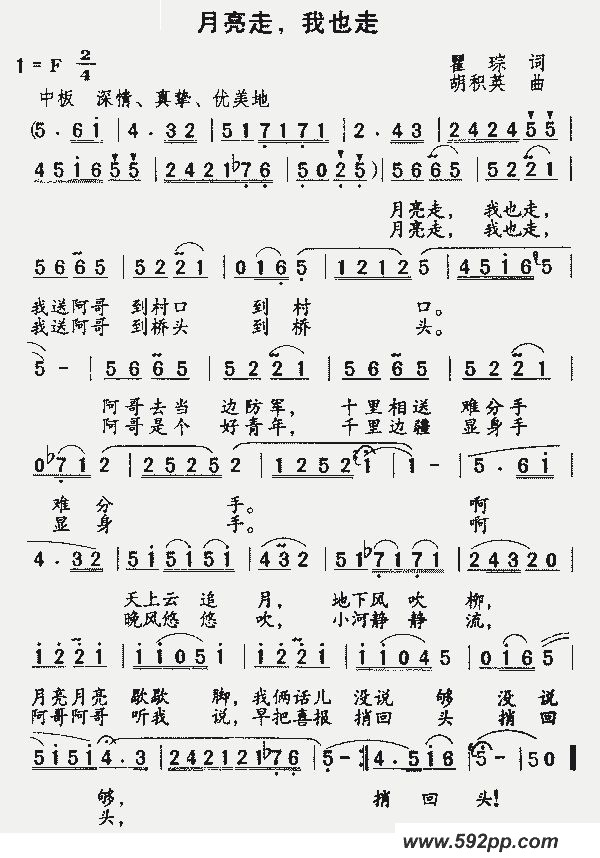 月亮走，我也走
1=F 2/4
瞿琮 词
胡积英 曲
中板 深情、真挚、优美地
(5.6i|4.32|5171̣71|2.43|242455|
451655|2421♭76|5025)|5665|5221|
月亮走， 我也走，
月亮走， 我也走，
5665|5221|0165|12125|45165|
我送阿哥 到村口 到 村 口。
我送阿哥 到桥头 到 桥 头。
5-|5665|5221|5665|5221|
阿哥去当 边防军， 十里相送 难分手
阿哥是个 好青年， 千里边疆 显身手
0♭712|25252|1252i|1-|5.6i|
难 分 手。 啊
显 身 手。 啊
4.32|515151|432|51♭7171|24320|
天上云 追 月， 地下风 吹 柳，
晚风悠 悠 吹， 小河静 静 流，
1221|11051|1221|11045|0165|
月亮月亮 歇歇 脚，我俩话儿 没说 够 没 说
阿哥阿哥 听我 说，早把喜报 捎回 头 捎 回
51514.3|242121♭76|5-:|4.516|5-|50‖
够， 捎 回 头！
头，
www.592pp.com